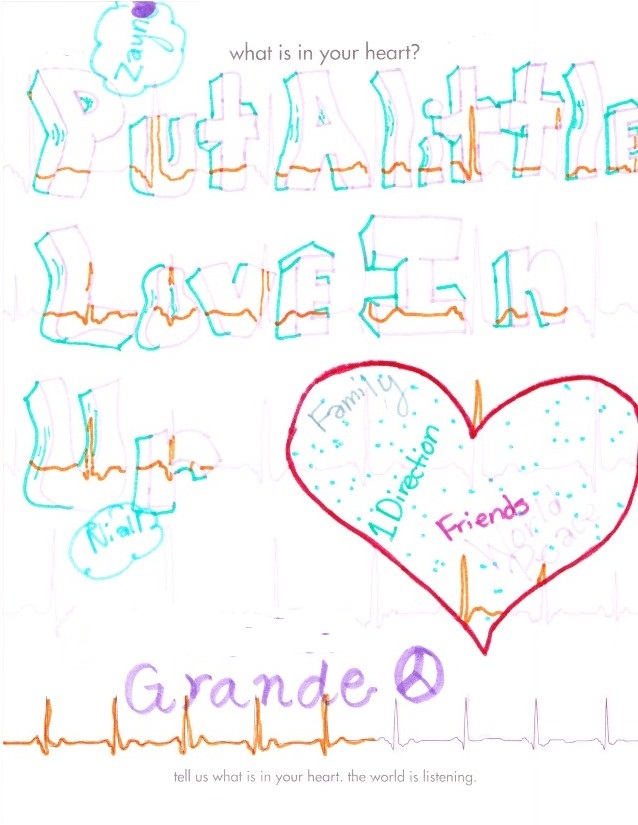 Zayn
what is in your heart?
Put A little
Love In
Ur
Niall
Family
1Direction
Friends
World
Peace
Grande
tell us what is in your heart. the world is listening.